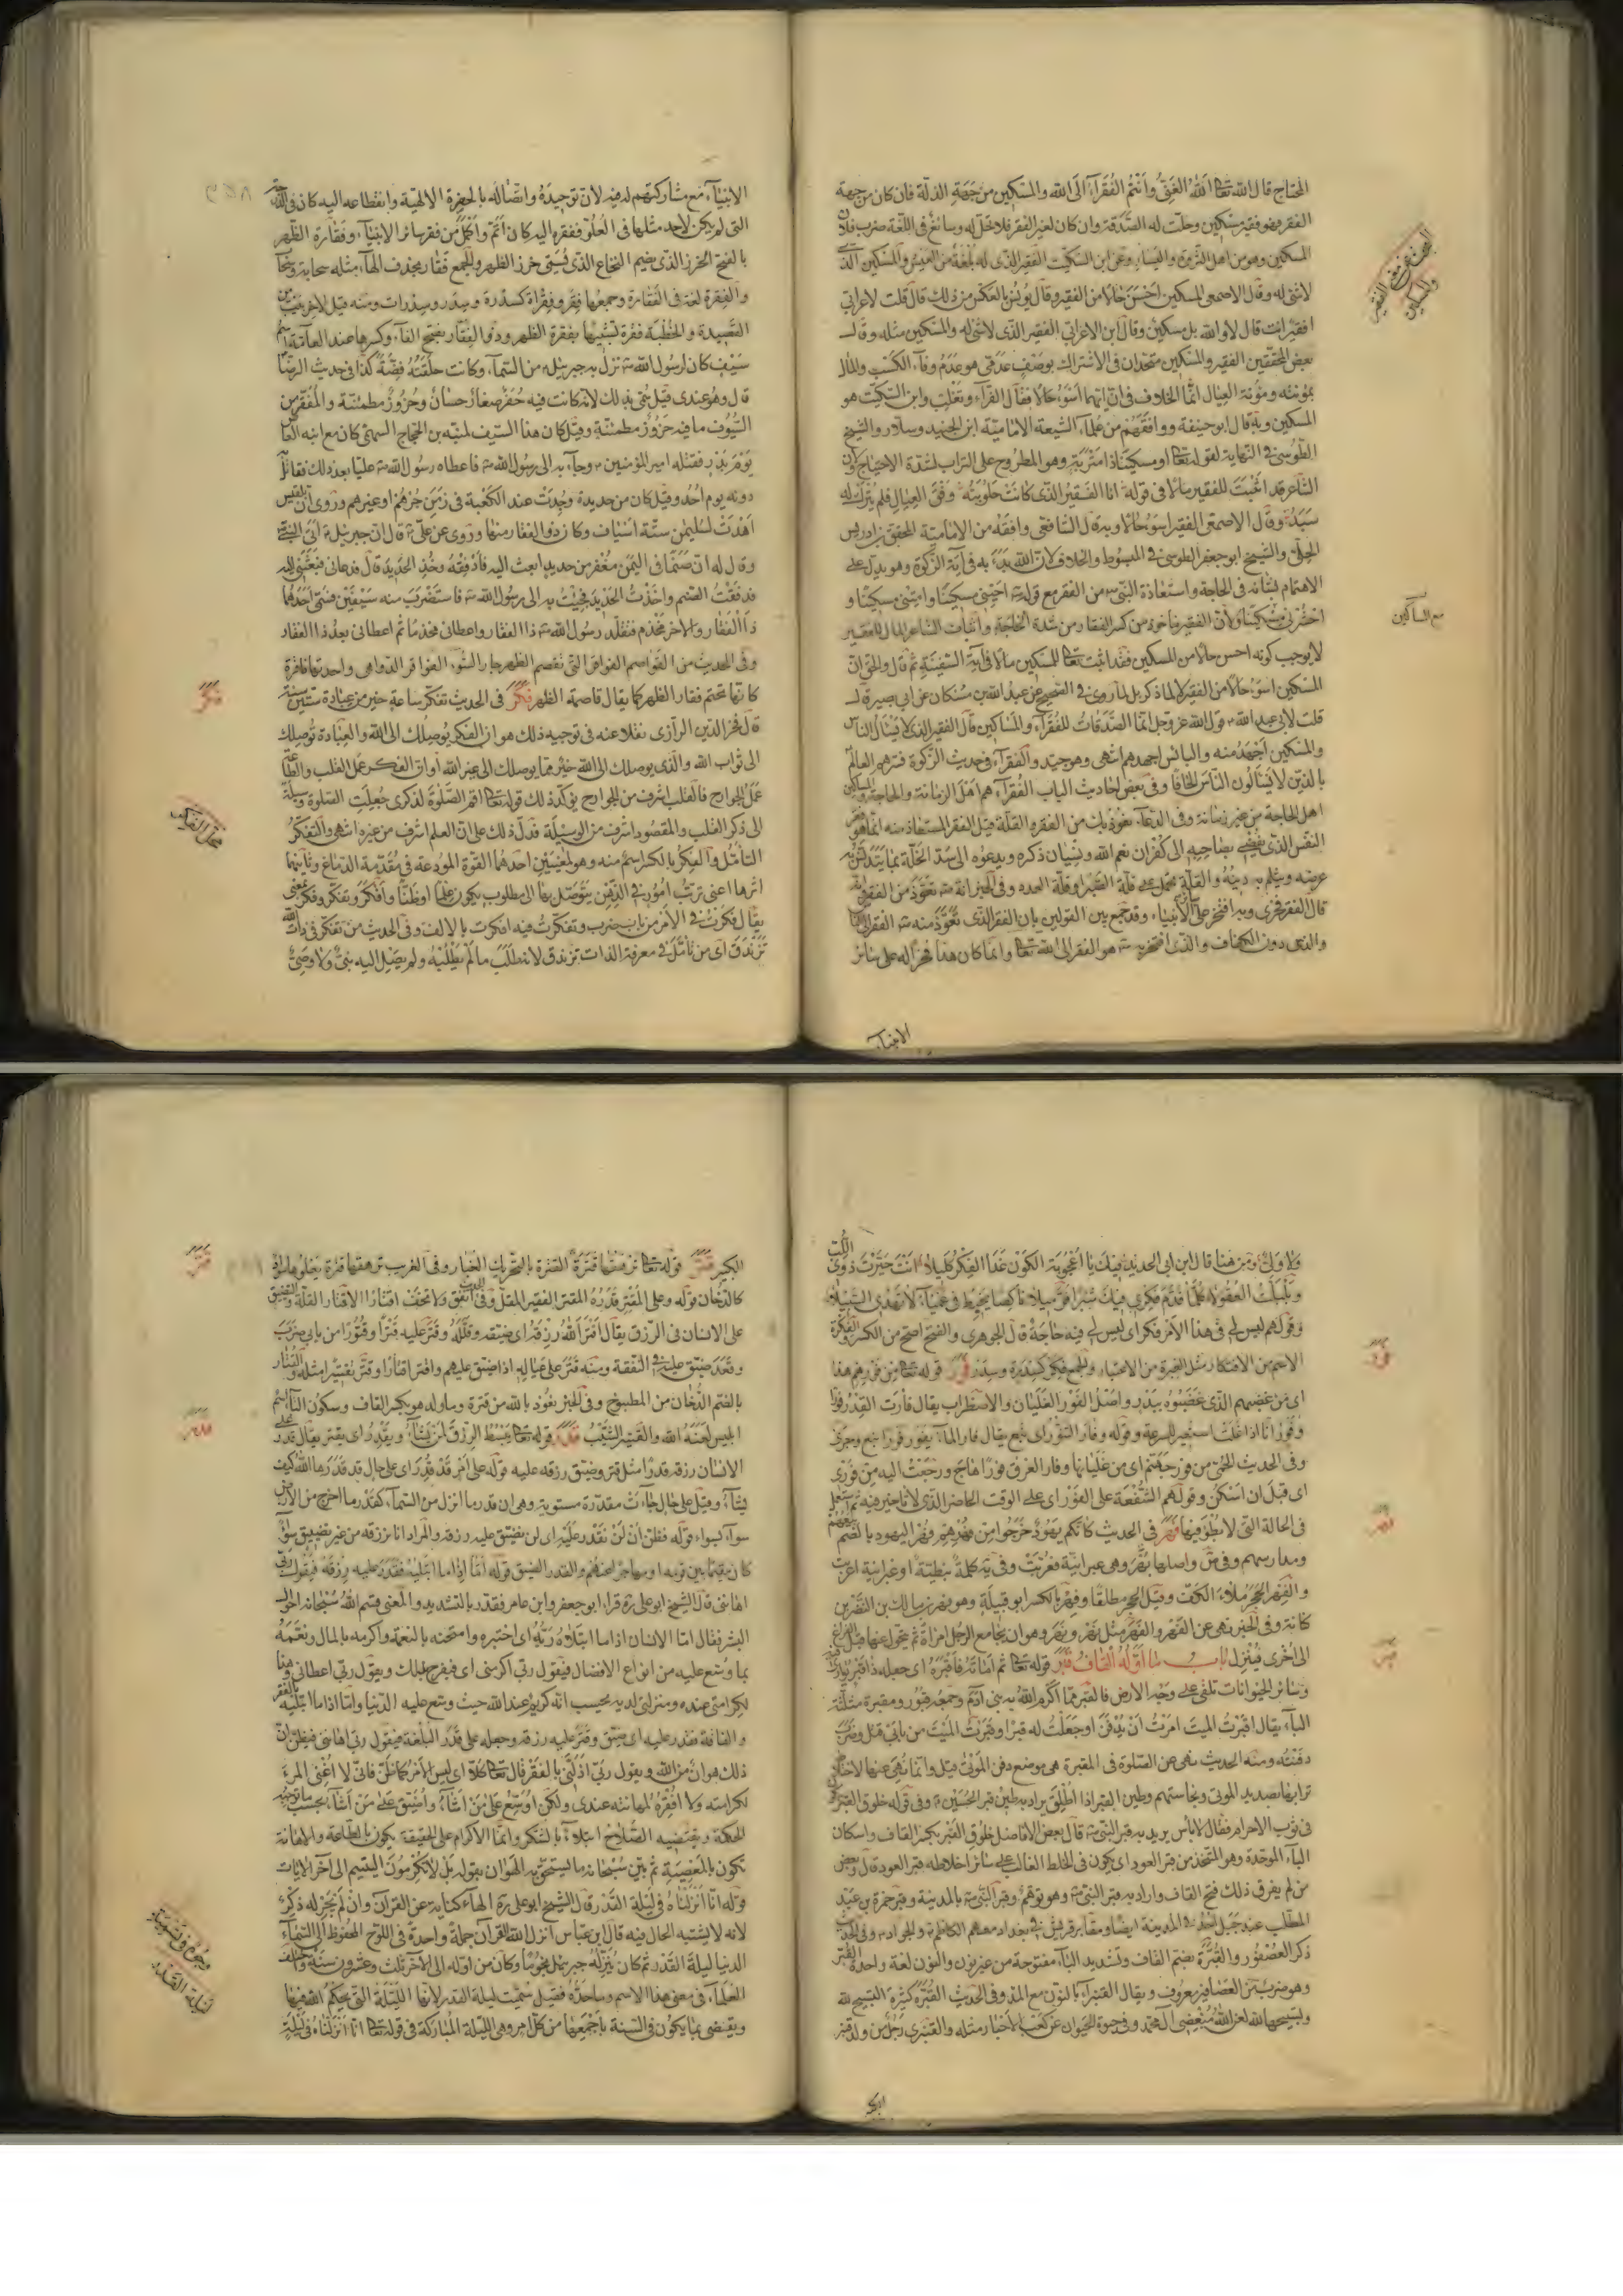 المحتاج قال الله تعالى الله الغنى وأنتم الفقراء الى الله والمسكين من جهة الذلة فان كان من جهة
الفقر فهو فقير مسكين وحلت له الصدقة وان كان لغير الفقر فلا تحل له وسائغ فى اللغة ضرب فلان
المسكين وهو من اهل الثروة واليسار وعن ابن السكيت الفقير الذى له بلغة من العيش والمسكين الذى
لا شئ له وقال الاصمعى المسكين احسن حالا من الفقير وقال يونس بالعكس من ذلك قال قلت لاعرابى
افقير انت قال لا والله بل مسكين وقال ابن الاعرابى الفقير الذى لا شئ له والمسكين مثله وقال
بعض المحققين الفقير والمسكين متحدان فى الاشتراك بوصف عدمى هو عدم وفاء الكسب والمال
بمونته ومؤنة العيال انما الخلاف فى ان ايهما اسوء حالا فقال الفراء وثعلب وابن السكيت هو
المسكين وبه قال ابو حنيفة ووافقهم من علماء الشيعة الامامية ابن الجنيد وسلار والشيخ
الطوسى فى النهاية لقوله تعالى او مسكينا ذا متربة وهو المطروح على التراب لشدة الاحتياج ولان
الشاعر قد اثبت للفقير مالا فى قوله انا الفقير الذى كانت حلوبته وفق العيال فلم يترك له
سبد وقال الاصمعى الفقير اسوء حالا وبه قال الشافعى وافقه من الامامية المحقق ابن ادريس
الحلى والشيخ ابو جعفر الطوسى فى المبسوط والخلاف لان الله بدء به فى آية الزكوة وهو يدل على
الاهتمام بشانه فى الحاجة واستعاذة النبى من الفقر مع قوله احينى مسكينا وامتنى مسكينا و
احشرنى مع المساكين ولان الفقير ماخوذ من كسر الفقار من شدة الحاجة واثبات الشاعر المال للفقير
لا يوجب كونه احسن حالا من المسكين فقد اثبت تعالى للمسكين مالا فى آية السفينة ثم قال والحق ان
المسكين اسوء حالا من الفقير لا لما ذكر بل لما روى فى الصحيح عن عبد الله بن مسكان عن ابى بصير قال
قلت لابى عبد الله قول الله عز وجل انما الصدقات للفقراء والمساكين قال الفقير الذى لا يسأل الناس
والمسكين اجهد منه والبائس اجهدهم انتهى وهو جيد والفقراء فى حديث الزكوة فسرهم العالم
بالذين لا يسألون الناس الحافا وفى بعض احاديث الباب الفقراء هم اهل الزمانة والحاجة والمساكين
اهل الحاجة من غير زمانة وفى الدعاء نعوذ بك من الفقر والقلة قيل الفقر المستعاذ منه انما هو فقر
النفس الذى يفضى بصاحبه الى كفران نعم الله ونسيان ذكره ويدعوه الى سد الخلة بما يتدنس به
عرضه ويثلم به دينه والقلة تحمل على قلة الصبر او قلة العدد وفى الخبر انه تعوذ من الفقر وانه
قال الفقر فخرى وبه افتخر على الأنبياء وقد جمع بين القولين بان الفقر الذى تعوذ منه الفقر الى الناس
والذى دون الكفاف والذى افتخر به هو الفقر الى الله تعالى وانما كان هذا فخرا له على سائر
الانبياء
البحث فى معنى الفقير والمسكين
مع المساكين
الانبياء مع مشاركتهم له فيه لان توحيده واتصاله بالحضرة الالهية وانقطاعه اليه كان فى الدرجة
التى لم يكن لاحد مثلها فى العلو ففقره اليه كان اتم واكمل من فقر سائر الانبياء وفقارة الظهر
بالفتح الخرز الذى يضم النخاع الذى يسمى خرز الظهر والجمع فقار بحذف الهاء مثله سحابة وسحاب
والفقرة لغة فى الفقارة وجمعها فقر وفقرات كسدرة وسدر وسدرات ومنه قيل لآخر بيت من
القصيدة والخطبة فقرة تشبيها بفقرة الظهر وذو الفقار بفتح الفاء وكسرها عند العامة اسم
سيف كان لرسول الله نزل به جبرئيل من السماء وكانت حلقته فضة كذا فى حديث الرضا
قال وهو عندى قيل سمى بذلك لانه كانت فيه حفر صغار حسان وحزوز مطمئنة والمفقر من
السيوف ما فيه حزوز مطمئنة وقيل كان هذا السيف لمنبه بن الحجاج السهمى كان مع ابنه العاص
يوم بدر فقتله امير المؤمنين وجاء به الى رسول الله فاعطاه رسول الله عليا بعد ذلك فقاتل
دونه يوم احد وقيل كان من حديدة وجدت عند الكعبة فى زمن جرهم او غيرهم وروى ان بلقيس
اهدت لسليمن ستة اسياف وكان ذو الفقار منها وروى عن على قال ان جبرئيل اتى النبى
وقال له ان صنما فى اليمن مغفر من حديد ابعث اليه فادققه وخذ الحديد قال فدعانى فبعثنى اليه
فدفعت الصنم واخذت الحديد فجئت به الى رسول الله فاستضرب منه سيفين فسمى احدهما
ذا الفقار والاخر مخذم فتقلد رسول الله ذا الفقار واعطانى مخذما ثم اعطانى بعد ذا الفقار
وفى الحديث من الفواقر التى تقصم الظهر جار السوء الفواقر الدواهى واحدتها فاقرة
كانها تحتم فقار الظهر كما يقال قاصمة الظهر فكر فى الحديث تفكر ساعة خير من عبادة ستين سنة
قال فخر الدين الرازى نقلا عنه فى توجيه ذلك هو ان الفكر يوصلك الى الله والعبادة توصلك
الى ثواب الله والذى يوصلك الى الله خير مما يوصلك الى غير الله او ان الفكر عمل القلب والطاعة
عمل الجوارح فالقلب اشرف من الجوارح يؤكد ذلك قوله تعالى اقم الصلوة لذكرى جعلت الصلوة وسيلة
الى ذكر القلب والمقصود اشرف من الوسيلة فدل ذلك على ان العلم اشرف من غيره انتهى والتفكر
التأمل والفكر بالكسر اسم منه وهو لمعنيين احدهما القوة المودعة فى مقدمة الدماغ وثانيهما
اثرها اعنى ترتب امور فى الذهن يتوصل بها الى مطلوب يكون علما او ظنا وافكر وتفكر وفكر بمعنى
يقال فكرت فى الأمر من باب ضرب وتفكرت فيه افكرت بالالف وفى الحديث من تفكر فى ذات الله
تزندق اى من تأمل فى معرفة الذات تزندق لانه طلب ما لم يطلبه ولم يصل اليه نبى ولا وصى
فكر
ولا ولى ومن هنا قال ابن ابى الحديد فيك يا اعجوبة الكون غدا الفكر كليلا انت حيرت ذوى اللب
وبلبلت العقولا كلما قدم فكرى فيك شبرا فر ميلا ناكصا يخبط فى عمياء لا يهدى السبيلا
وقولهم ليس لى فى هذا الأمر فكر اى ليس لى فيه حاجة قال الجوهرى والفتح افصح من الكسر والفكرة
الاسم من الافتكار مثل العبرة من الاعتبار والجمع فكر كسدرة وسدر فور قوله تعالى من فورهم هذا
اى من غضبهم الذى غضبوه ببدر واصل الفور الغليان والاضطراب يقال فارت القدر فورا
وفورانا اذا غلت استعير للسرعة وقوله وفار التنور اى نبع يقال فار الماء يفور فورا نبع وجرى
وفى الحديث الحمى من فور جهنم اى من غليانها وفار العرق فورا هاج ورجعت اليه من فورى
اى قبل ان اسكن وقولهم الشفعة على الفور اى على الوقت الحاضر الذى لا تاخير فيه ثم استعمل
فى الحالة التى لا بطؤ فيها فهر فى الحديث كانكم يهود خرجوا من فهرهم وفهر اليهود بالضم
ومدارسهم وفى واصلها بهر وهى عبرانية فعربت وفى كلمة نبطية او عبرانية اعربت
والفهر الحجر ملاء الكف وقيل الحجر مطلقا وفهر بالكسر ابو قبيلة وهو فهر بن مالك بن النضر بن
كنانة وفى الخبر نهى عن الفهر والفهر مثل نهر ونهر وهو ان يجامع الرجل امراة ثم يتحول عنها قبل الفراغ
الى أخرى فينزل باب ما اوله القاف قبر قوله تعالى ثم اماته فاقبره اى جعله ذا قبر يوارى فيه
وسائر الحيوانات تلقى على وجه الارض فالقبر مما اكرم الله به بنى آدم وجمعه قبور ومقبرة مثلثة
الباء يقال اقبرت الميت امرت أن يدفن او جعلت له قبرا وقبرت الميت من بابى قتل وضرب
دفنته ومنه الحديث نهى عن الصلوة فى المقبرة هى موضع دفن الموتى قيل وانما نهى عنها لاختلاط
ترابها بصديد الموتى ونجاستهم وطين القبر اذا اطلق يراد به طين قبر الحسين وفى قوله خلوق القبر
فى ثوب الاحرام فقال لا بأس يريد به قبر النبى قال بعض الافاضل خلوق القبر بكسر القاف واسكان
الباء الموحدة وهو المتخذ من قبر العود اى يكون فى الخلط الغالب على سائر اخلاطه قبر العود قال وبعض
من لم يفرق ذلك فتح القاف واراد به قبر النبى وهو توهم وقبر النبى بالمدينة وقبر حمزة بن عبد
المطلب عند جبل احد فى المدينة ايضا ومقابر قريش فى بغداد معهم الكاظم والجواد وفى الحديث
ذكر العصفور والقبرة بضم القاف وتشديد الباء مفتوحة من غير نون والنون لغة واحدة القبر
وهو ضرب من العصافير معروف ويقال القنبراء بالنون مع المد وفى الحديث القبرة كثيرة التسبيح لله
وتسبيحها لله لعن الله مبغضى آل محمد وفى حيوة الحيوان عن كعب الاحبار مثله والقنبرى رجل من ولد قنبر
الكبير
فور
فهر
قبر
الكبير قتر قوله تعالى ترهقها قترة القترة بالتحريك الغبار وفى الغريب ترهقها قترة يعلوها سواد
كالدخان قوله وعلى المقتر قدره المقتر الفقير المقل وفى انفق ولا تخف اقتارا الاقتار القلة والتضيق
على الانسان فى الرزق يقال اقتر الله رزقه اى ضيقه وقلله وقتر عليه قترا وقتورا من بابى ضرب
وقعد ضيق عليه فى النفقة ومنه قتر على عياله اذا ضيق عليهم واقتر اقتارا وقتر تقتيرا مثله القتار
بالضم الدخان من المطبوخ وفى الخبر تعوذ بالله من قترة وما ولد هو بكسر القاف وسكون التاء اسم
ابليس لعنه الله والقتير الشيب قدر قوله تعالى يبسط الرزق لمن يشاء ويقدر اى يقتر يقال قدر على
الانسان رزقه قدرا مثل قتر وضيق رزقه عليه قوله على امر قد قدر اى على حال قد قدرها الله كيف
يشاء وقيل على حال جاءت مقدرة مستوية وهى ان قدر ما انزل من السماء كقدر ما اخرج من الارض
سواء بسواء قوله فظن أن لن نقدر عليه اى لن نضيق عليه رزقه والمراد انا نرزقه من غير تضييق سواء
كان مقيما بين قومه او مهاجرا عنهم والقدر الضيق قوله اما اذا ما ابتليه فقدر عليه رزقه فيقول ربى
اهاننى قال الشيخ ابو على ره قرأ ابو جعفر وابن عامر فقدر بالتشديد والمعنى قسم الله سبحانه احوال
البشر فقال اما الانسان اذا ما ابتلاه ربه اى اختبره وامتحنه بالنعمة واكرمه بالمال ونعمه
بما وسع عليه من انواع الافضال فيقول ربى اكرمنى اى فيفرح بذلك ويقول ربى اعطانى هذا
لكرامتى عنده ومنزلتى لديه يحسب انه كريم عند الله حيث وسع عليه الدنيا واما اذا ما ابتليه بالفقر
والفاقة فقدر عليه اى ضيق وقتر عليه رزقه وجعله على قدر البلغة فيقول ربى اهاننى فيظن ان
ذلك هوان من الله ويقول ربى اذلنى بالفقر قال تعالى كلا اى ليس الأمر كما ظن فانى لا اغنى المرء
لكرامته ولا افقره لمهانته عندى ولكن اوسع على من اشاء واضيق على من اشاء بحسب ما توجبه
الحكمة ويقتضيه الصلاح ابتلاء بالشكر وانما الاكرام على الحقيقة يكون بالطاعة والاهانة
تكون بالمعصية ثم بين سبحانه ما يستحق به الهوان بقوله بل لا تكرمون اليتيم الى آخر الايات
قوله انا انزلناه فى ليلة القدر قال الشيخ ابو على ره الهاء كناية عن القرآن وان لم يجر له ذكر
لانه لا يشتبه الحال فيه قال ابن عباس انزل الله القرآن جملة واحدة فى اللوح المحفوظ الى السماء
الدنيا ليلة القدر ثم كان ينزله جبرئيل نجوما وكان من اوله الى آخره ثلث وعشرون سنة واختلف
العلماء فى معنى هذا الاسم وماخذه فقيل سميت ليلة القدر لانها الليلة التى يحكم الله فيها
ويقضى بما يكون فى السنة باجمعها من كل امر وهى الليلة المباركة فى قوله تعالى انا انزلناه فى ليلة
قتر
قدر